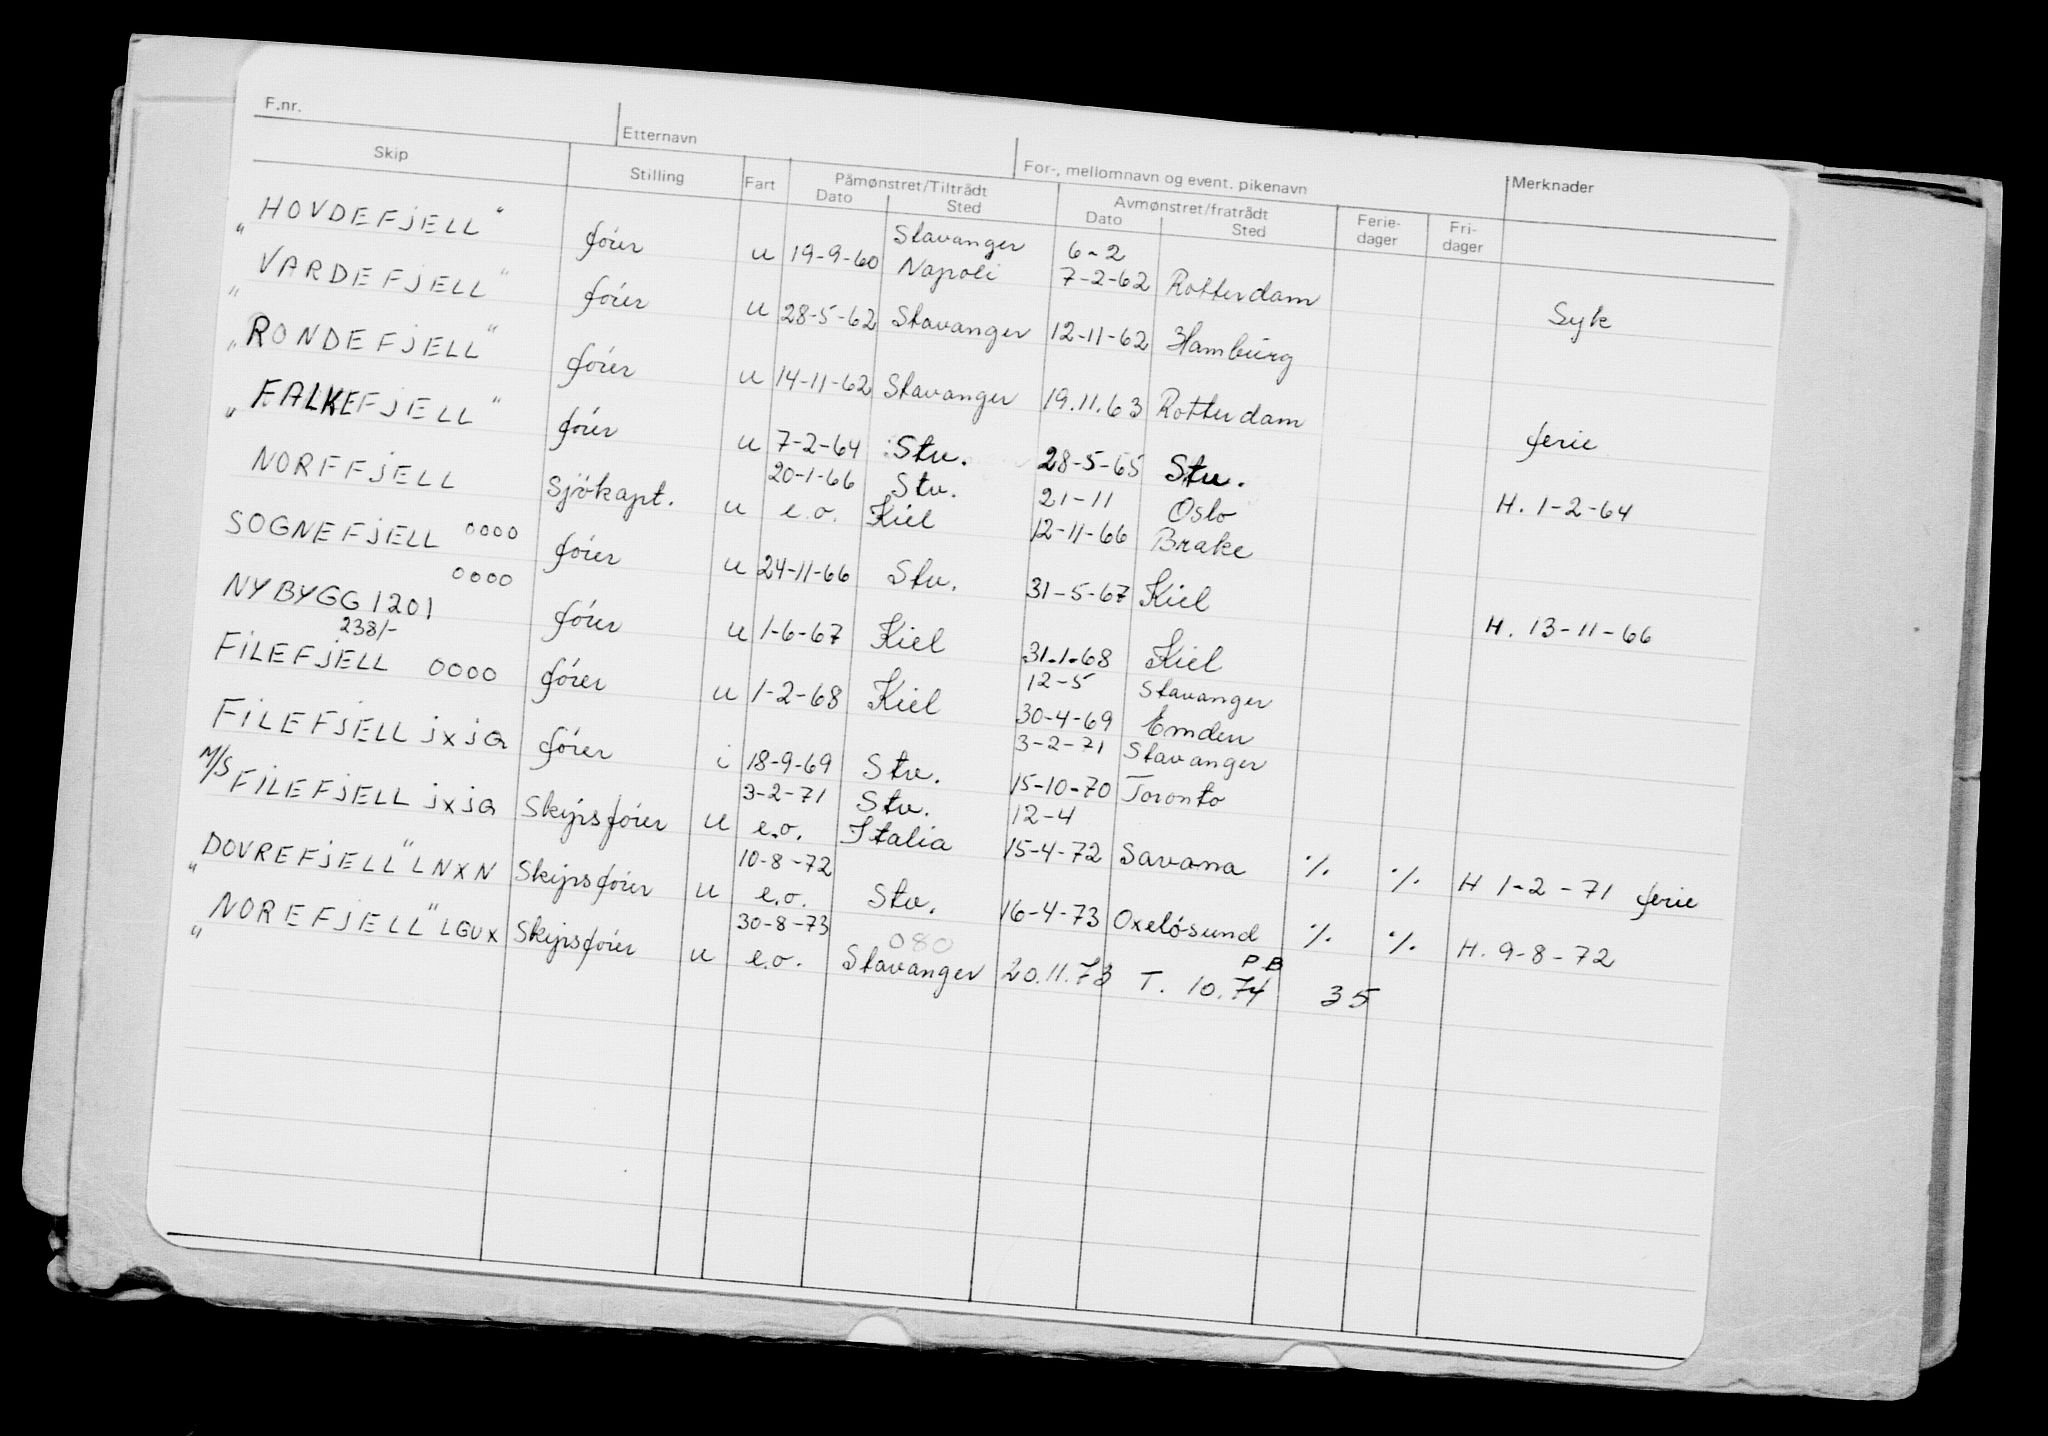 F.nr. Etternavn For-, mellomnavn og event. pikenavn Merknader
Skip Stilling Fart Påmønstret/Tiltrådt Avmønstret/fratrådt Ferie-dager Fri-dager
Dato Sted Dato Sted
Stavanger 6-2
"HOVDEFJELL" fóier u 19-9-60 Napoli 7-2-62 Rotterdam Syk
"VARDEFJELL" fóier u 28-5-62 Stavanger 12-11-62 Hamburg
"RONDEFJELL" fóier u 14-11-62 Stavanger 19.11.63 Rotterdam ferie
"FALKEFJELL" fóier u 7-2-64 Stv. 28-5-65 Stv. H. 1-2-64
20-1-66 Stv. 21-11 Oslo
NOREFJELL Sjökapt. u e.o. Kiel 12-11-66 Brake
SOGNEFJELL 0000 fóier u 24-11-66 Stv. 31-5-67 Kiel H. 13-11-66
0000
NYBYGG 1201 fóier u 1-6-67 Kiel 31.1.68 Kiel
238/- 12-5 Stavanger
FILEFJELL 0000 fóier u 1-2-68 Kiel 30-4-69 Emden
3-2-71 Stavanger
FILEFJELL JXJQ fóier i 18-9-69 Stv. 15-10-70 Toronto
3-2-71 Stv. 12-4
M/S FILEFJELL JXJQ Skipsfóier u e.o. Italia 15-4-72 Savana % % H 1-2-71 ferie
10-8-72
"DOVREFJELL" LNXN Skipsfóier u e.o. Stv. 16-4-73 Oxelósund % % H. 9-8-72
30-8-73 080 P.B
"NOREFJELL" LGUX Skipsfóier u e.o. Stavanger 20.11.73 T. 10.74 35